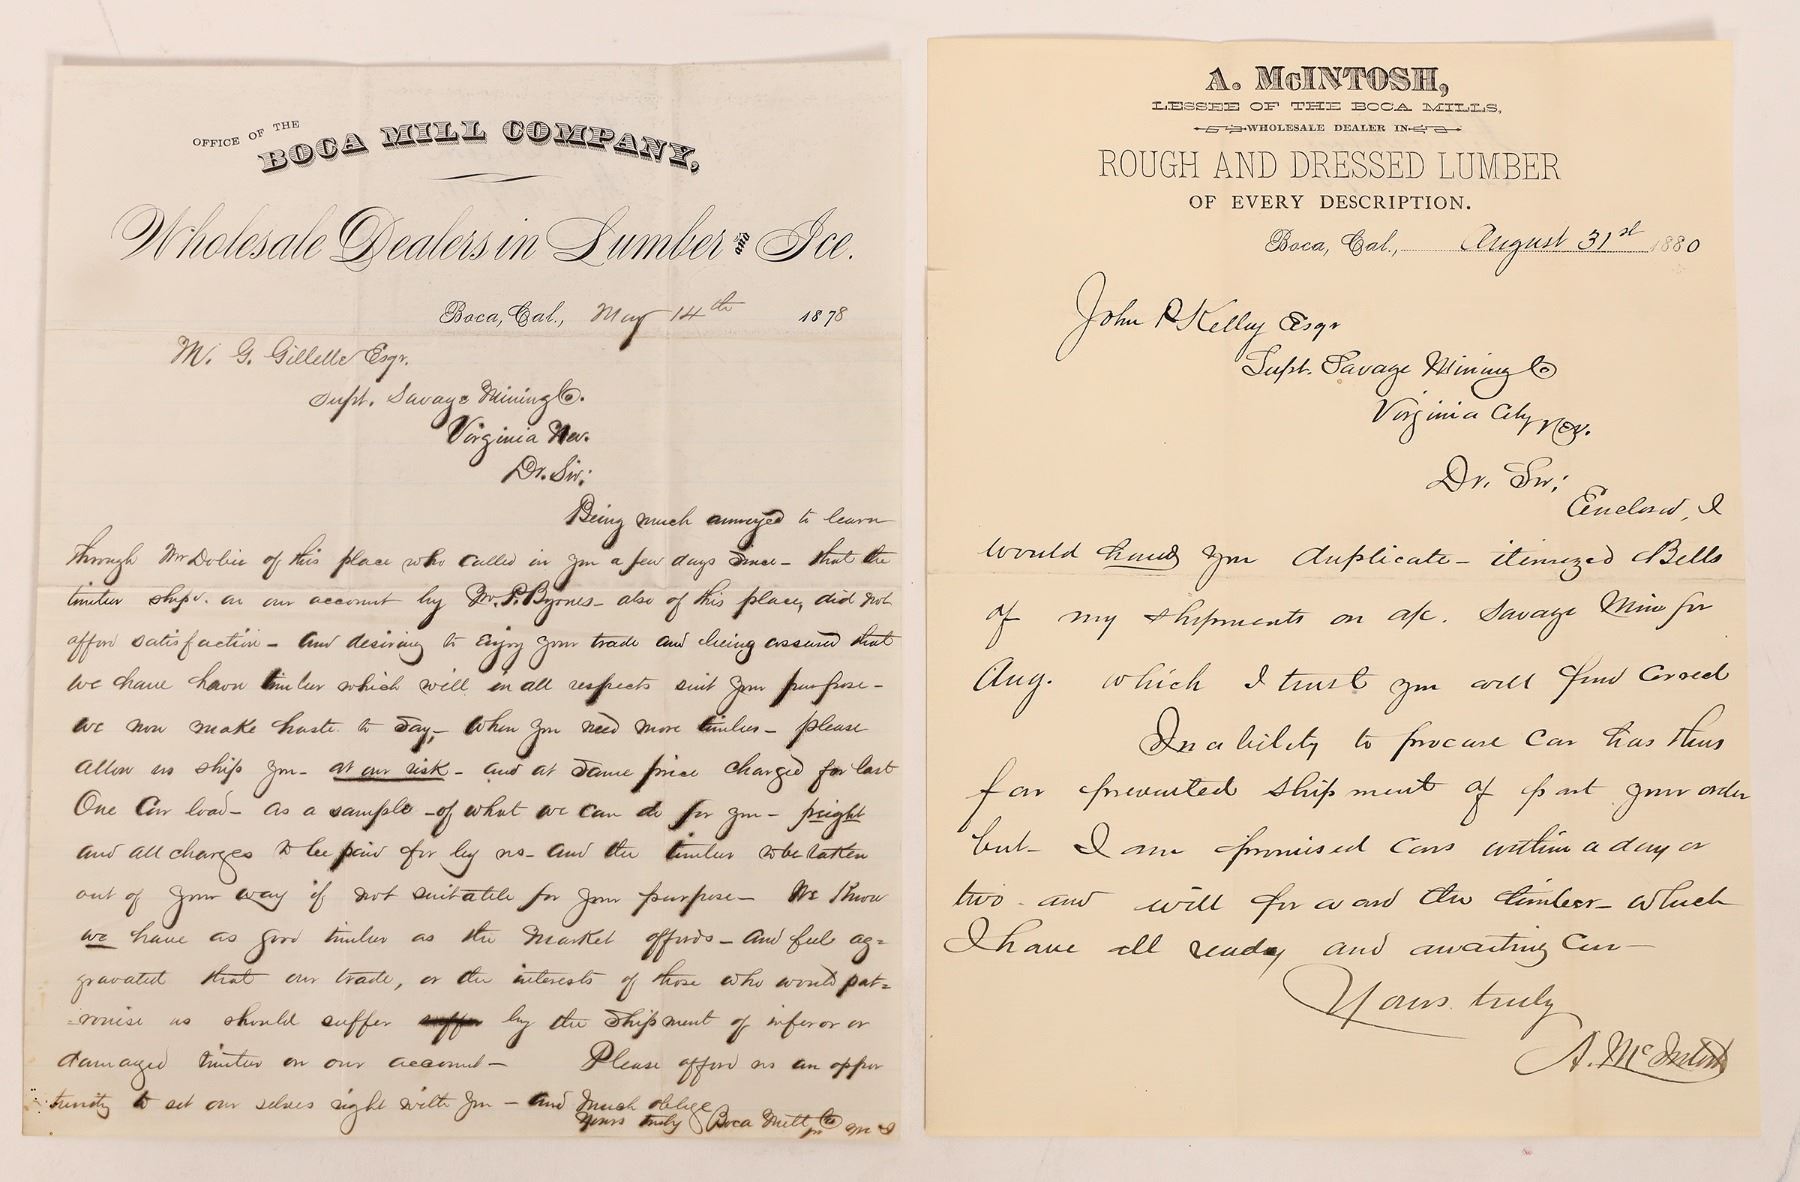 OFFICE OF THE
BOCA MILL COMPANY,
Wholesale Dealers in Lumber and Ice.
Boca, Cal., May 14th 1878
M. G. Gillette Esqr.
Supt. Savage Mining Co.
Virginia Nev.
Dr. Sir;
Being much annoyed to learn
through Mr Dobie of this place who called on you a few days since - that the
timber shipd. on our account by Mr. P. Byrnes - also of this place, did not
afford satisfaction - and desiring to enjoy your trade and being assured that
we have timber which will in all respects suit your purpose -
we now make haste to say, - when you need more timber - please
allow us ship you - at our risk - and at same price charged for last
One Car load - as a sample - of what we can do for you - freight
and all charges to be paid for by us - and the timber to be taken
out of your way if not suitable for your purpose - We Know
we have as good timber as the market affords - and feel ag=
gravated that our trade, or the interests of those who would pat=
=ronise us should suffer suffer by the shipment of inferor or
damaged timber on our account - Please afford us an oppor
tunity to set our selves right with you - and much oblige
Yours truly Boca Mill Co
A. McINTOSH,
LESSEE OF THE BOCA MILLS,
WHOLESALE DEALER IN
ROUGH AND DRESSED LUMBER
OF EVERY DESCRIPTION.
Boca, Cal., August 31st 1880
John P Kelly Esqr
Supt. Savage Mining Co
Virginia City Nev.
Dr. Sir;
Enclosed, I
would hand you duplicate - itemized Bills
of my shipments on a/c. Savage Mine for
Aug. which I trust you will find correct
Inability to procure Car has thus
far prevented shipment of part your order
but - I am promised cars within a day or
two - and will forward the timber - which
I have all ready and awaiting Car -
Yours truly
A. McIntosh